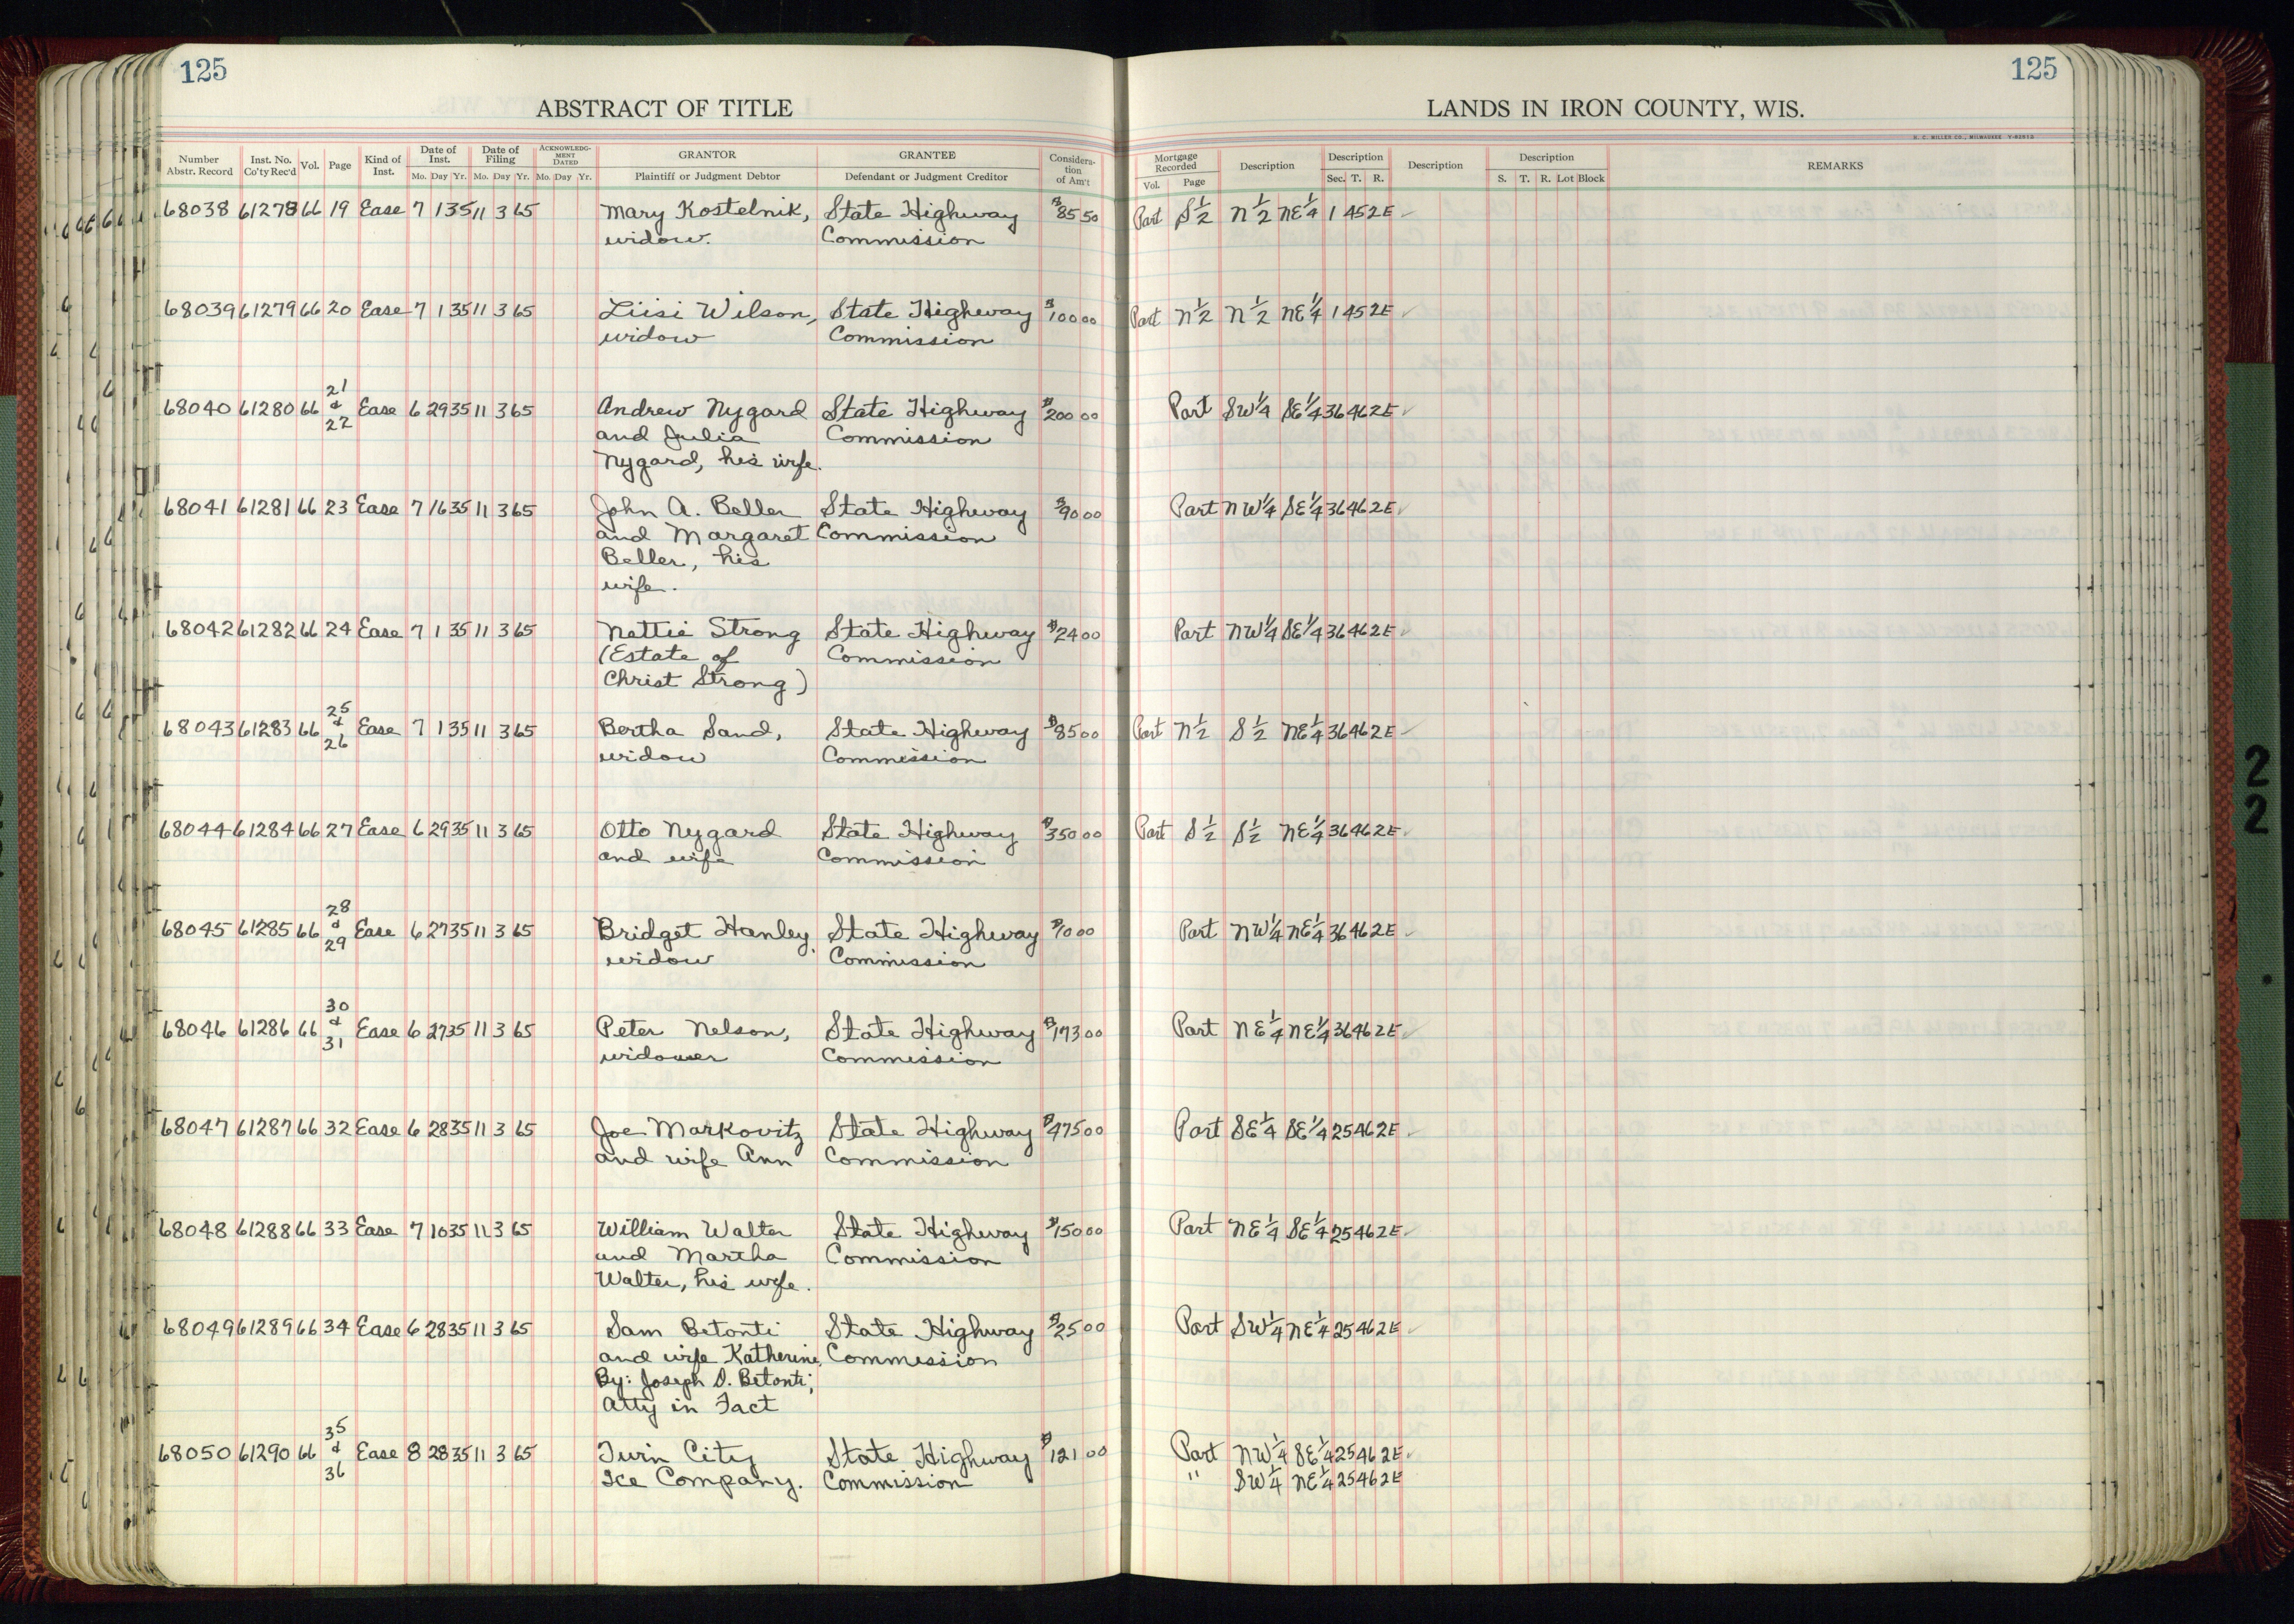 125
125
ABSTRACT OF TITLE
LANDS IN IRON COUNTY, WIS.
H. C. MILLER CO., MILWAUKEE
Number Abstr. Record
Inst. No. Co'ty Rec'd
Vol.
Page
Kind of Inst.
Date of Inst.
Mo. Day Yr.
Date of Filing
Mo. Day Yr.
ACKNOWLEDGMENT DATED
Mo. Day Yr.
GRANTOR
Plaintiff or Judgment Debtor
GRANTEE
Defendant or Judgment Creditor
Consideration of Am't
Mortgage Recorded
Vol. Page
Description
Description
Sec. T. R.
Description
Description
S. T. R. Lot Block
REMARKS
68038 61278 66 19 Ease 7 1 35 11 3 65 Mary Kostelnik, State Highway $85 50 Part S½ N½ NE¼ 1 45 2E ✓
widow. Commission
68039 61279 66 20 Ease 7 1 35 11 3 65 Liisi Wilson, State Highway $100 00 Part N½ N½ NE¼ 1 45 2E ✓
widow Commission
68040 61280 66 21 & 22 Ease 6 29 35 11 3 65 Andrew Nygard State Highway $200 00 Part SW¼ SE¼ 36 46 2E ✓
and Julia Commission
Nygard, his wife.
68041 61281 66 23 Ease 7 16 35 11 3 65 John A. Beller State Highway $90 00 Part NW¼ SE¼ 36 46 2E ✓
and Margaret Commission
Beller, his
wife.
68042 61282 66 24 Ease 7 1 35 11 3 65 Nettie Strong State Highway $24 00 Part NW¼ SE¼ 36 46 2E ✓
(Estate of Commission
Christ Strong)
68043 61283 66 25 & 26 Ease 7 1 35 11 3 65 Bertha Sand, State Highway $85 00 Part N½ S½ NE¼ 36 46 2E ✓
widow Commission
68044 61284 66 27 Ease 6 29 35 11 3 65 Otto Nygard State Highway $350 00 Part S½ S½ NE¼ 36 46 2E ✓
and wife Commission
68045 61285 66 28 & 29 Ease 6 27 35 11 3 65 Bridget Hanley, State Highway $10 00 Part NW¼ NE¼ 36 46 2E ✓
widow Commission
68046 61286 66 30 & 31 Ease 6 27 35 11 3 65 Peter Nelson, State Highway $173 00 Part NE¼ NE¼ 36 46 2E ✓
widower Commission
68047 61287 66 32 Ease 6 28 35 11 3 65 Joe Markovitz State Highway $475 00 Part SE¼ SE¼ 25 46 2E ✓
and wife Ann Commission
68048 61288 66 33 Ease 7 10 35 11 3 65 William Walter State Highway $150 00 Part NE¼ SE¼ 25 46 2E ✓
and Martha Commission
Walter, his wife.
68049 61289 66 34 Ease 6 28 35 11 3 65 Sam Betonti State Highway $25 00 Part SW¼ NE¼ 25 46 2E ✓
and wife Katherine, Commission
By: Joseph D. Betonti,
Atty in Fact
68050 61290 66 35 & 36 Ease 8 28 35 11 3 65 Twin City State Highway $121 00 Part NW¼ SE¼ 25 46 2E ✓
Ice Company. Commission " SW¼ NE¼ 25 46 2E
2
2